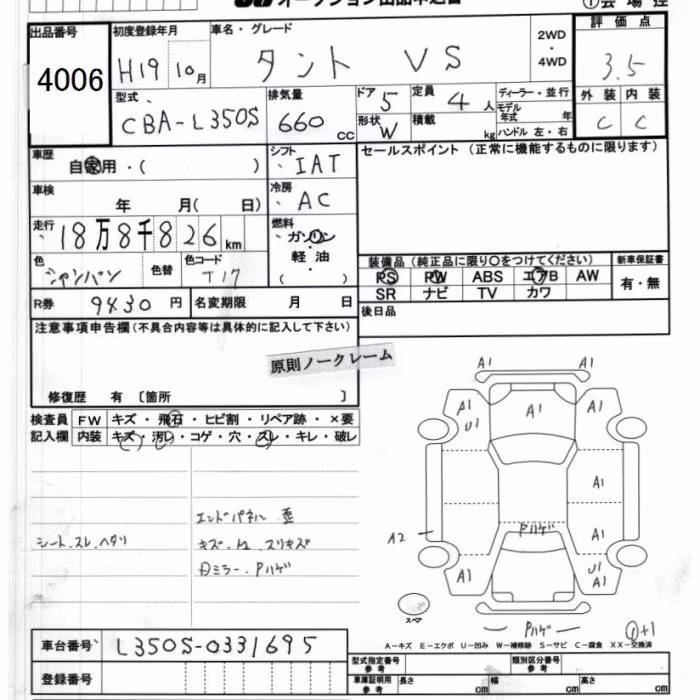 オークション出品申込書
①会場控
出品番号 4006
初度登録年月 H19 10月
車名・グレード タント VS
2WD・4WD
評価点 3.5
型式 CBA-L350S
排気量 660 cc
ドア 5 形状 W
定員 4 人 積載 kg
ディーラー・並行
モデル年式 年
ハンドル 左・右
外装 C 内装 C
車歴 自家用・( )
シフト IAT
セールスポイント (正常に機能するものに限ります)
車検 年 月( 日)
冷房 AC
走行 18万8千826km
燃料 ガソリン・軽油・( )
色 シャンパン 色替 色コード T17
装備品 (純正品に限り○をつけてください)
新車保証書
PS PW ABS エアB AW
SR ナビ TV カワ
有・無
R券 9430 円 名変期限 月 日
後日品
注意事項申告欄 (不具合内容等は具体的に記入して下さい)
原則ノークレーム
修復歴 有 〔箇所 〕
検査員記入欄
FW キズ・飛石・ヒビ割・リペア跡・×要
内装 キズ・汚レ・コゲ・穴・スレ・キレ・破レ
シート.スレ.ヘタリ
エンドパネル 歪
キズ・凹 スリキズ
ミラー・Pハゲ
A1 A1
A1 U1 A1 A1
A1
A2 Pハゲ A1
A1 U1 A1
スペア
Pハゲ ①+1
A-キズ E-エクボ U-凹み W-補修跡 S-サビ C-腐食 XX-交換済
車台番号 L350S-0331695
型式指定番号 参考 類別区分番号 参考
登録番号
車庫証明用 参考 長さ cm 幅 cm 高さ cm